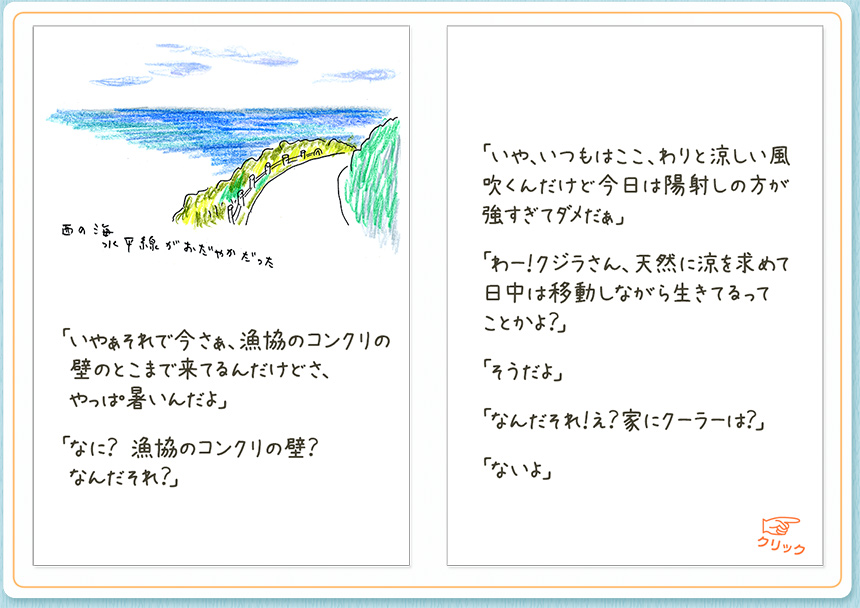 西の海
水平線がおだやかだった
「いやぁそれで今さぁ、漁協のコンクリの
壁のとこまで来てるんだけどさ、
やっぱ暑いんだよ」
「なに? 漁協のコンクリの壁?
なんだそれ?」
「いや、いつもはここ、わりと涼しい風
吹くんだけど今日は陽射しの方が
強すぎてダメだぁ」
「わー!クジラさん、天然に涼を求めて
日中は移動しながら生きてるって
ことかよ?」
「そうだよ」
「なんだそれ!え?家にクーラーは?」
「ないよ」
クリック